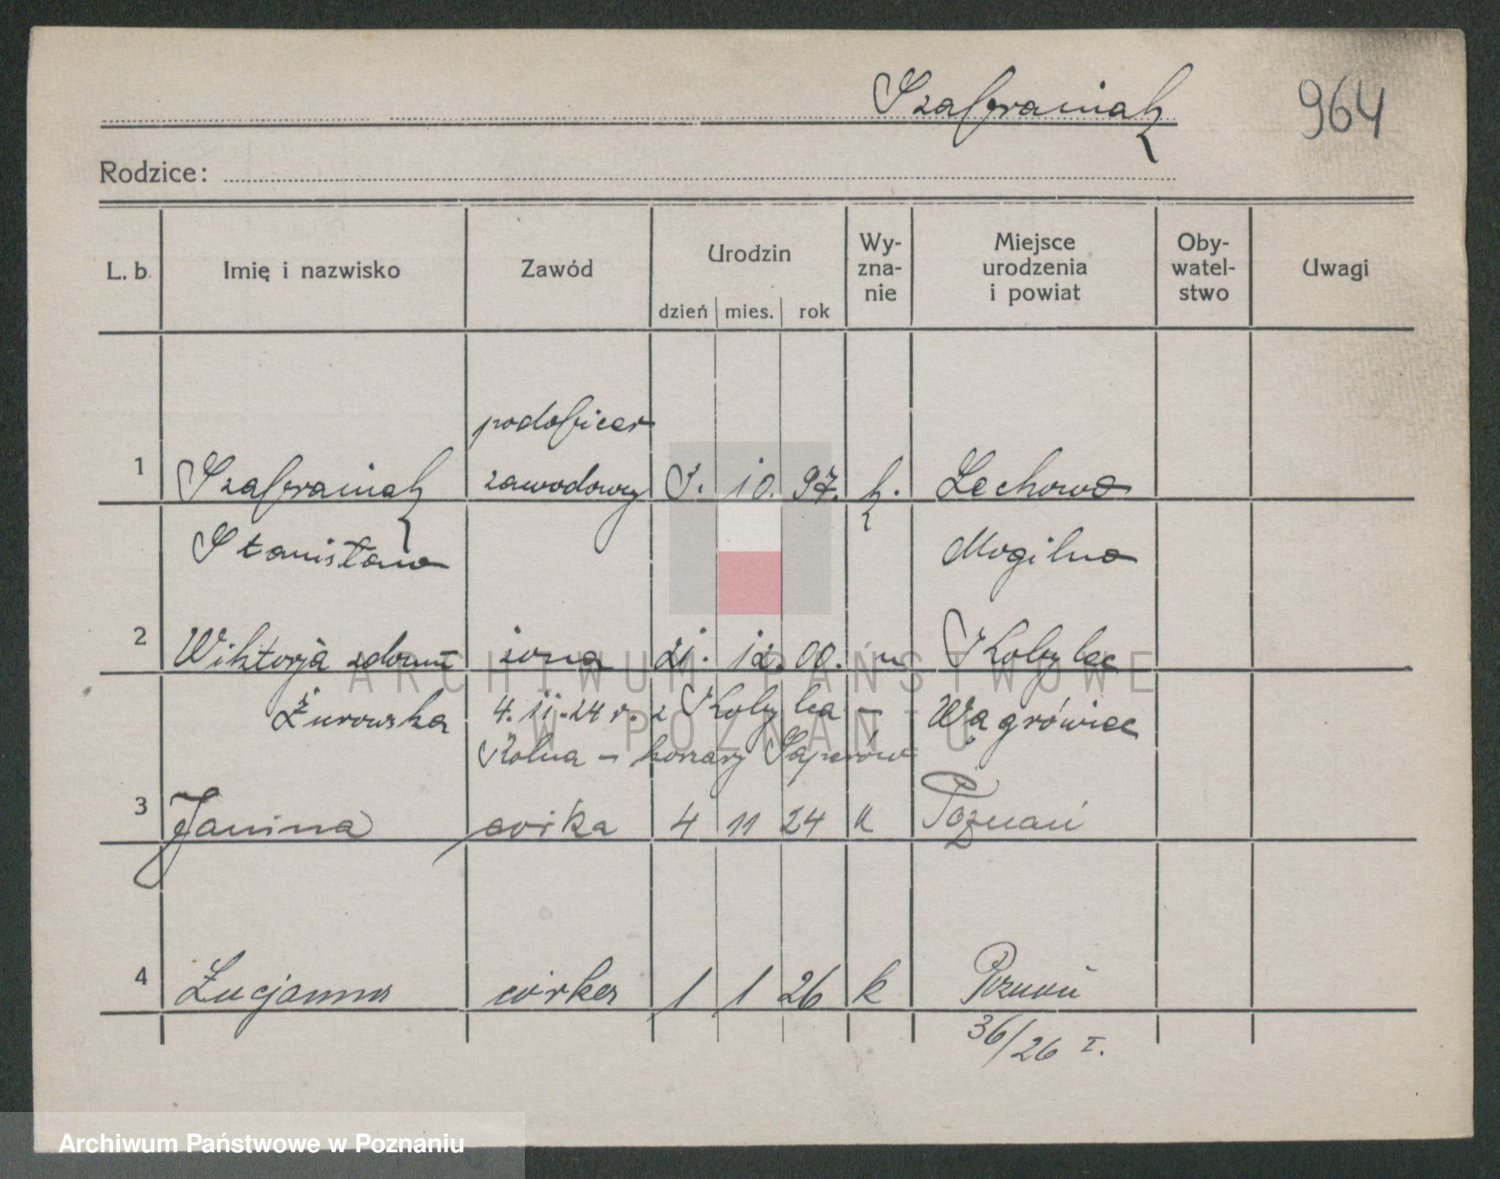 Szafraniak
964
Rodzice:
L. b. Imię i nazwisko Zawód Urodzin dzień mies. rok Wy-zna-nie Miejsce urodzenia i powiat Oby-watel-stwo Uwagi
podoficer
1 Szafraniak zawodowy 10. 97. k. Lechowo
Stanisław Mogilno
2 Wiktorja z domu żona 21. 12. 00. Kobylec
Żurowska 4. 11. 24 r. z Wągrówiec
Rolna – koszary Saperów
3 Janina córka 4 11 24 k Poznań
4 Łucjanna córka 1 1 26 k Poznań
36/26 I.
ARCHIWUM PAŃSTWOWE
W POZNANIU
Archiwum Państwowe w Poznaniu